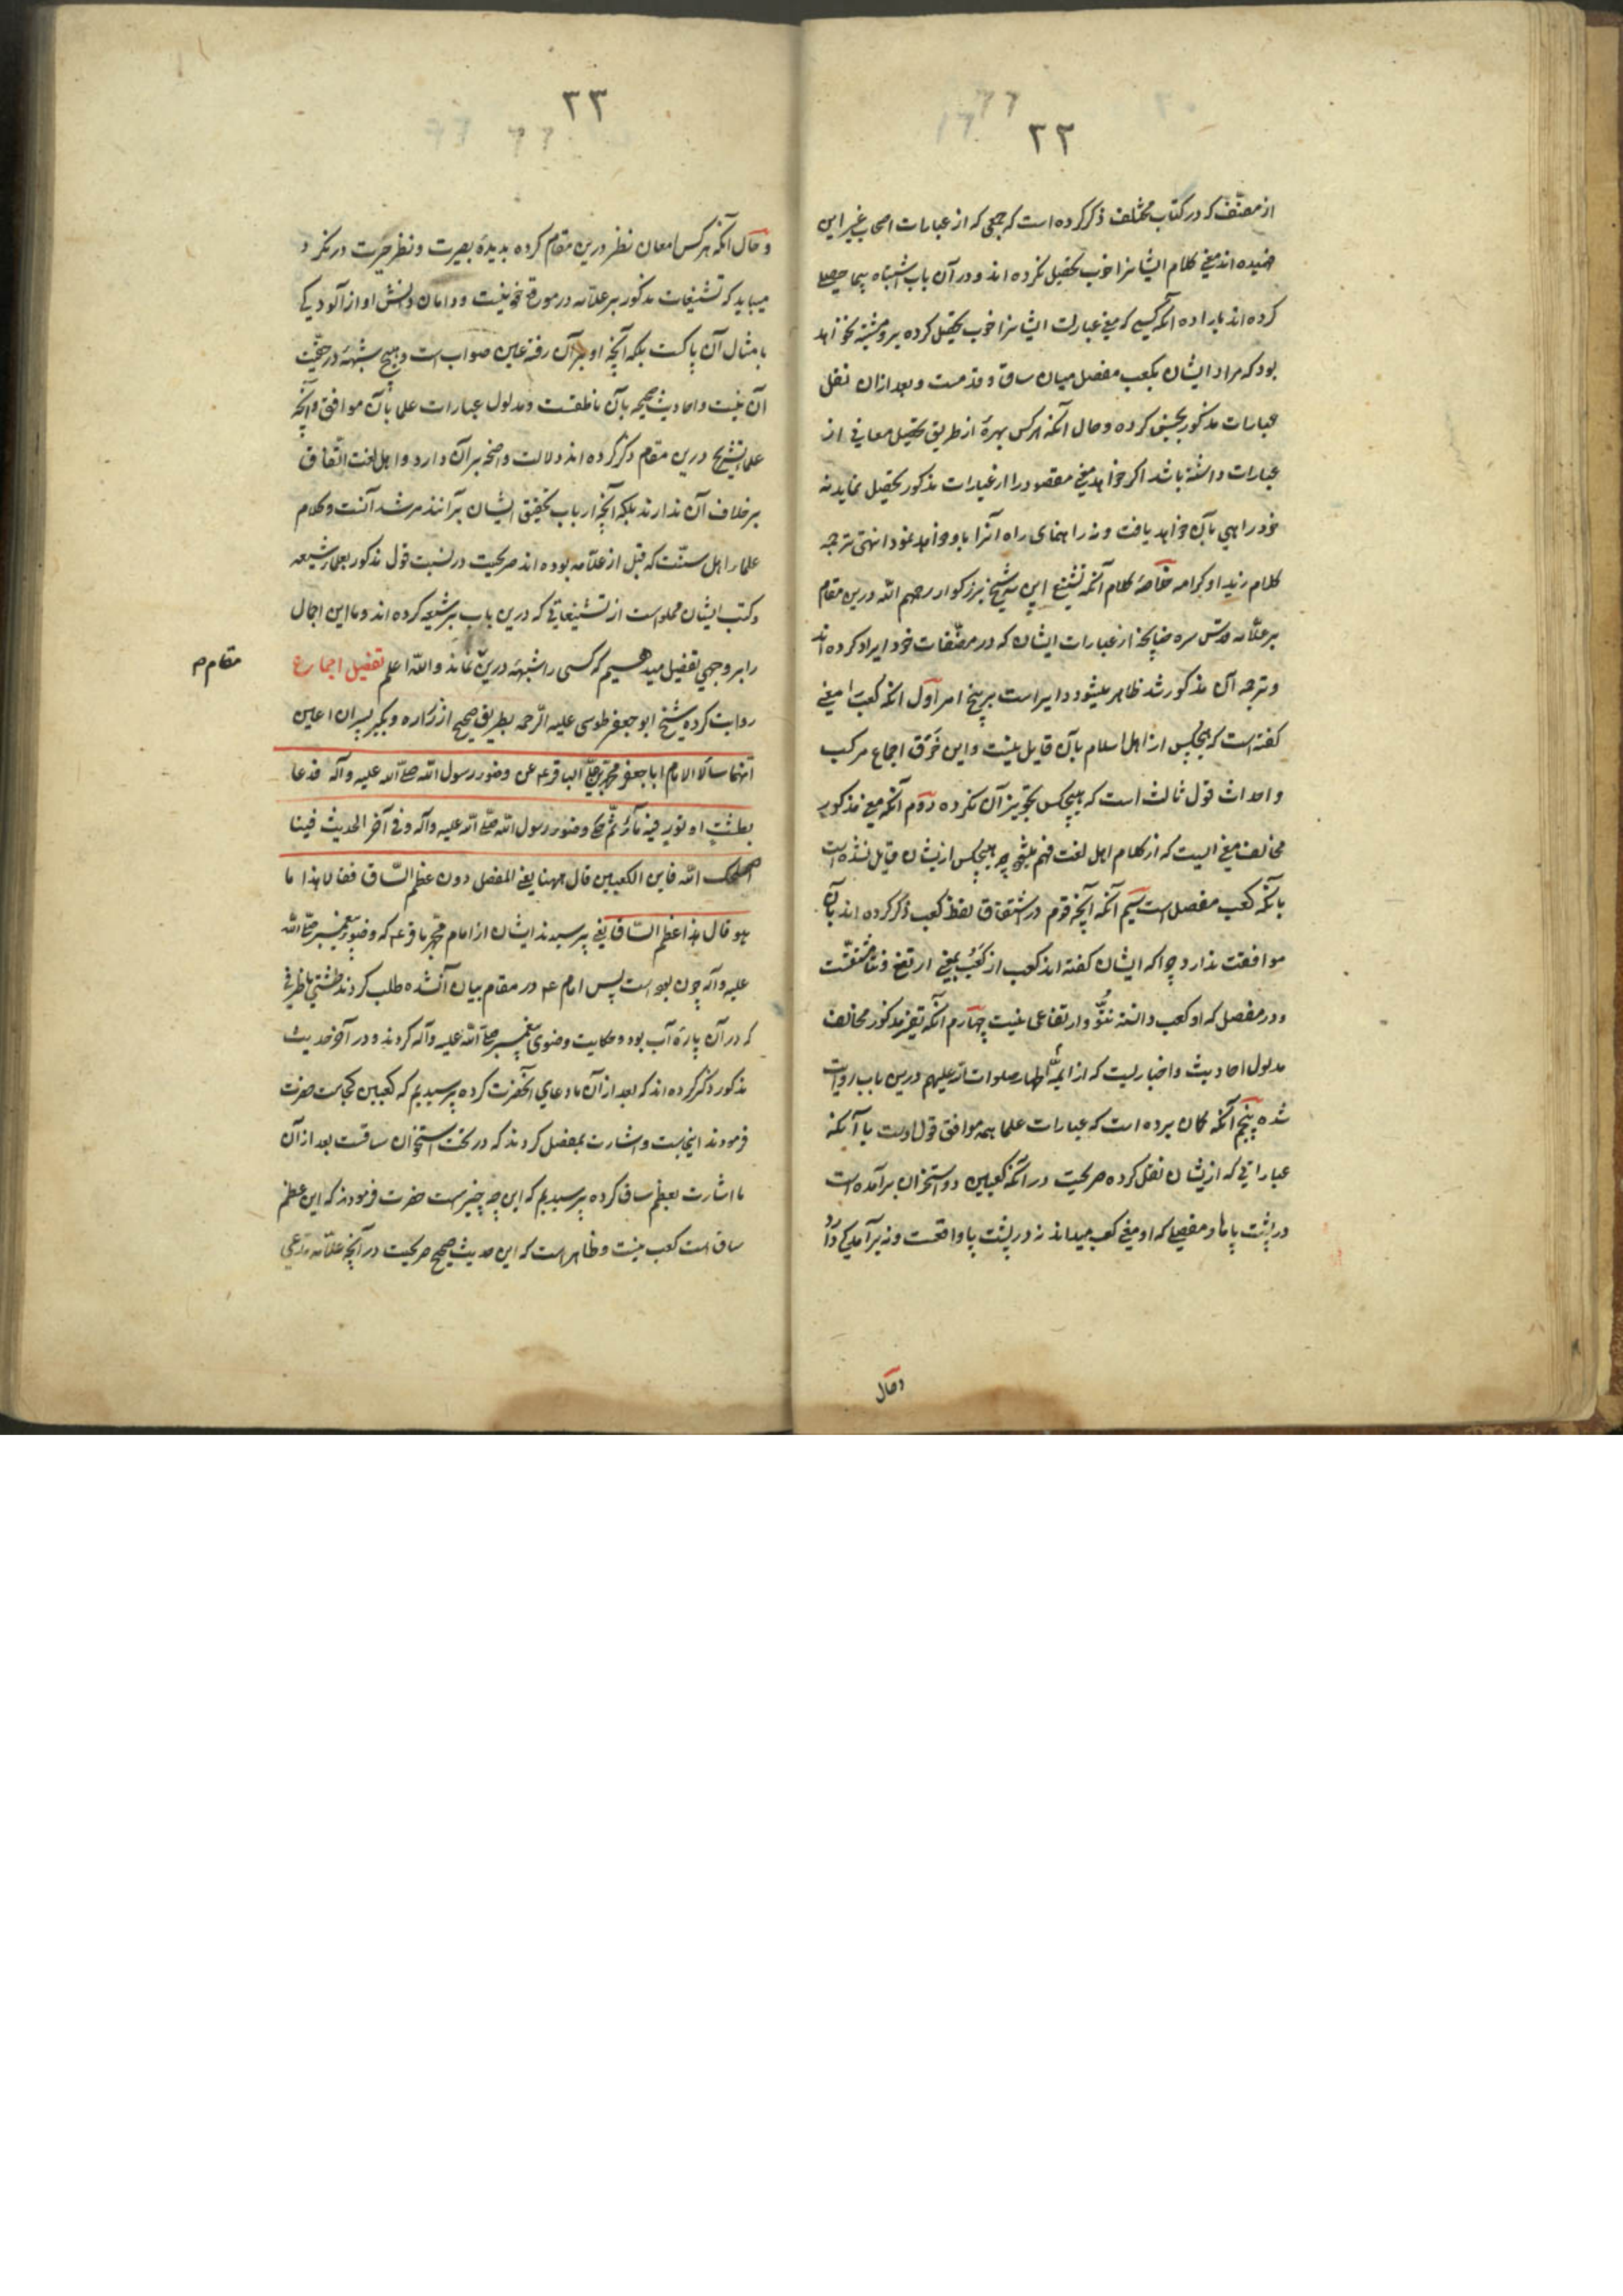 ٢٢
از مصنّف که در کتاب مختلف ذکر کرده است که جمعی که از عبارات اصحاب غیر این
فهمیده‌اند معنی کلام ایشانرا خوب تحصیل نکرده‌اند و در آن باب اشتباه بیما حصلی
کرده‌اند باراده آنکه کسی که معنی عبارات ایشانرا خوب تحصیل کرده برو مشتبه نخواهد
بود که مراد ایشان بکعب مفصل میان ساق و قدمست و بعد از ان نقل
عبارات مذکور بجنس کرده و حال آنکه هر کس بهرهٔ از طریق تحصیل معانی از
عبارات داشته باشد اکر خواهد معنی مقصود را از عبارات مذکور تحصیل نماید نه
خود راهی بآن خواهد یافت و نه راهنمای راه آنرا باو خواهد نمود انتهی ترجمه
کلام زید اوکرامه خلاصهٔ کلام آنکه تشنیع این شیخ بزرکوار رحمهم الله درین مقام
بر علّامه قدّس سره چنانچه از عبارات ایشان که در مصنّفات خود ایراد کرده‌اند
و ترجمه آن مذکور شد ظاهر میشود دایر است بر پنج امر اوّل آنکه کعب را معنی
کفته است که هیچکس از اهل اسلام بآن قایل نیست و این خَرق اجماع مرکب
و احداث قول ثالث است که هیچکس تجویز آن نکرده دوّم آنکه معنی مذکور
مخالف معنی ایست که از کلام اهل لغت فهم میشود چه هیچکس ازیشان قایل نشده است
بآنکه کعب مفصل است سیّم آنکه آنچه قوم در اشتقاق لفظ کعب ذکر کرده‌اند بآن
موافقت ندارد چرا که ایشان کفته‌اند کعب از کَعُبَ بمعنی ارتفع و نتا مشتقّست
و در مفصل که او کعب دانسته نتوّ و ارتفاعی نیست چهارم آنکه تعریف مذکور مخالف
مدلول احادیث و اخباریست که از ایمهٔ اطهار صلوات الله علیهم درین باب روایت
شده پنجم آنکه کمان برده است که عبارات علما همه موافق قول اوست با آنکه
عباراتی که ازیشان نقل کرده صریحست در آنکه کعبین دو استخوان برآمده است
در پشت پاها و مفصلی که او معنی کعب میداند نه در پشت پا واقعست و نه برآمدکی دارد
و حال
٢٣
و حال آنکه هر کس امعان نظر درین مقام کرده بدیدهٔ بصیرت و نظر حیرت در نکرد
میباید که تشنیعات مذکور بر علّامه در موقع خود نیست و دامان دانش او از آلودیکی
بامثال آن پاکست بلکه آنچه او بر آن رفته عین صواب است و هیچ شبهه در حقّیت
آن نیست و احادیث صحیحه بآن ناطقست و مدلول عبارات علما بآن موافق و آنچه
علماء تشریح درین مقام ذکر کرده‌اند دلالت واضحه بر آن دارد و اهل لغت اتفاق
بر خلاف آن ندارند بلکه آنچه ارباب تحقیق ایشان برآنند مرشد آنست و کلام
علماء اهل سنّت که قبل از علّامه بوده‌اند صریحست در نسبت قول مذکور بعلماء شیعه
و کتب ایشان مملو است از تشنیعاتی که درین باب بر شیعه کرده‌اند و ما این اجمال
را بر وجهی تفصیل میدهیم که کسی را شبهه درین نماند و الله اعلم تفصیل اجمال ع
مقام م
روایت کرده شیخ ابو جعفر طوسی علیه الرّحمه بطریق صحیح از زراره و بکیر پسران اعین
انهما سألا الامام ابا جعفر محمد بن علیّ الباقر ع عن وضوء رسول الله صلّی الله علیه وآله فدعا
بطشتٍ او تورٍ فیه ماءٌ ثمّ حکی وضوء رسول الله صلّی الله علیه وآله و فی آخر الحدیث قلنا
اصلحک الله فاین الکعبین قال ههنا یعنی المفصل دون عظم السّاق فقالا هذا ما
هو قال هذا عظم السّاق یعنی پرسیدند ایشان از امام محمّد باقر ع که وضوی پیغمبر صلّی الله
علیه وآله چون بوده است پس امام ع در مقام بیان آن شده طلب کردند طشتی یا ظرفی
که در آن پارهٔ آب بود و حکایت وضوی پیغمبر صلّی الله علیه وآله کردند و در آخر حدیث
مذکور ذکر کرده‌اند که بعد از آن ما دعای آنحضرت کرده پرسیدیم که کعبین کجاست حضرت
فرمودند اینجاست و اشارت بمفصل کردند که در تحت استخوان ساقست بعد از آن
ما اشارت بعظم ساق کرده پرسیدیم که این چه چیز است حضرت فرمودند که این عظم
ساق است کعب نیست و ظاهر است که این حدیث صحیح صریحست در آنچه علّامه مدّعی